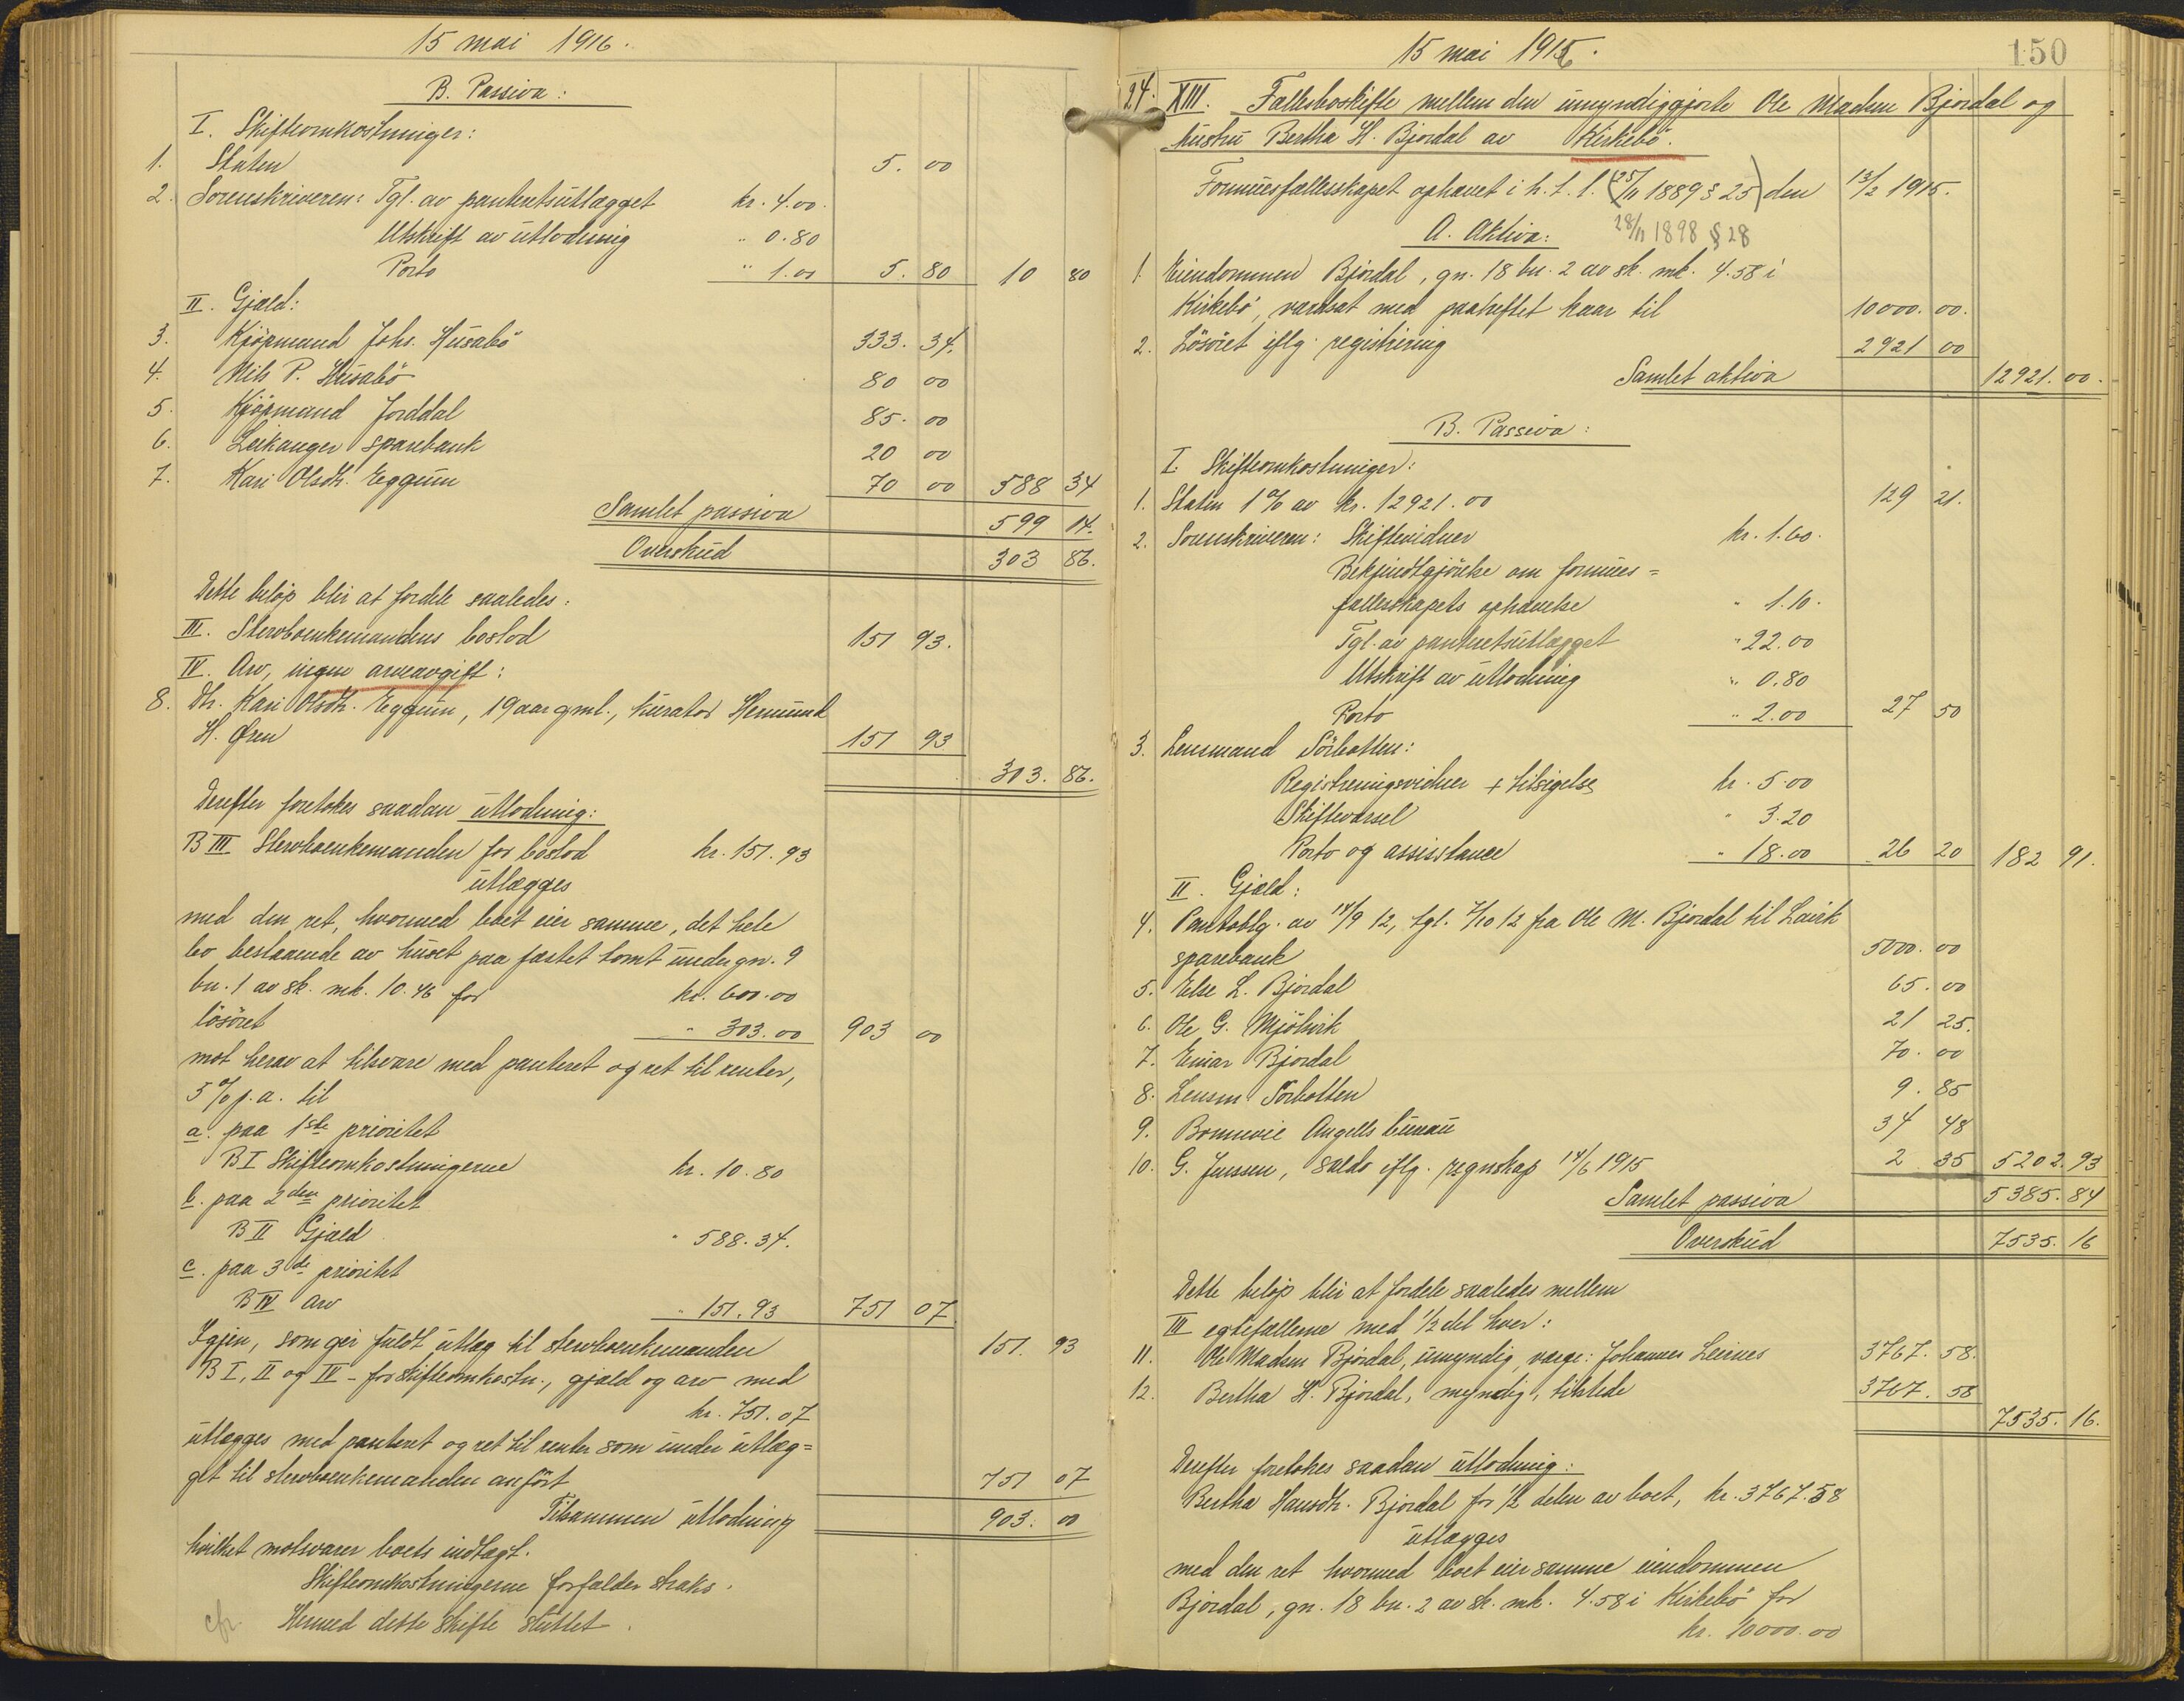 15 mai 1916.
B. Passiva:
I. Skifteomkostninger:
1. Staten 5.00
2. Sorenskriveren: Tgl. av panteretsutlægget kr. 4.00.
Utskrift av utlodning " 0.80
Porto " 1.00 5.80 10 80
II. Gjæld:
3. Kjøpmand Johs. Husabö 333.34.
4. Nils P. Husabö 80 00
5. Kjöpmand Jorddal 85.00
6. Leikanger sparebank 20 00
7. Kari Olsdtr. Eggum 70 00 588 34
Samlet passiva 599 14.
Overskud 303 86.
Dette beløp blir at fordele saaledes:
III. Stervboenkemandens boslod 151 93.
IV. Arv, ingen arveavgift:
8. Dtr. Kari Olsdtr. Eggum, 19 aar gml., kurator Hermund
H. Øren 151 93
303.86.
Derefter foretokes saadan utlodning:
B III Stervboenkemanden for boslod kr. 151.93
utlægges
med den ret, hvormed boet eier samme, det hele
bo bestaaende av huset paa fæstet tomt under gn. 9
bn. 1 av sk. mk. 10.46 for kr. 600.00
lösöret " 303.00 903 00
mot herav at tilsvare med panteret og ret til renter,
5 % p.a. til
a. paa 1ste prioritet
B I Skifteomkostningerne kr. 10.80
b. paa 2den prioritet
B II Gjæld " 588.34.
c. paa 3de prioritet
B IV arv " 151.93 751 07.
Igjen, som gir fuldt utlæg til stervboenkemanden 151.93
B I, II og IV - for skifteomkostn., gjæld og arv med
kr. 751.07
utlægges med panteret og ret til renter som under utlæg=
get til stervboenkemanden anført 751 07
Tilsammen utlodning 903.00
hvilket motsvarer boets indtægt.
Skifteomkostningerne forfalder straks.
Hermed dette skifte sluttet.
cfr
15 mai 1916.
150
24. XIII. Fællesboskifte mellem den umyndiggjorte Ole Madsen Bjordal og
hustru Bertha H. Bjordal av Kirkebö.
Formuesfællesskapet ophævet i h. t. l. (25/11 1889 § 25) den 13/2 1915.
28/11 1898 § 28
A. Aktiva:
1. Eiendommen Bjordal, gn. 18 bn. 2 av sk. mk. 4.58 i
Kirkebö, værdsat med paaheftet kaar til 10000.00.
2. Lösöret iflg. registrering 2921 00
Samlet aktiva 12921.00.
B. Passiva:
I. Skifteomkostninger:
1. Staten 1 % av kr. 12921.00 129 21.
2. Sorenskriveren: Skiftevidner kr. 1.60.
Bekjendtgjörelse om formues=
fællesskapets ophævelse " 1.10.
Tgl. av panteretsutlægget " 22.00
Utskrift av utlodning " 0.80
Porto " 2.00 27 50
3. Lensmand Sörbotten:
Registreringsvidner + tilsigelse kr. 5.00
Skiftevarsel " 3.20
Porto og assisstance " 18.00 26 20 182 91.
II. Gjæld:
4. Pantoblg. av 14/9 12, tgl. 7/10 12 fra Ole M. Bjordal til Lavik
sparebank 5000.00
5. Else L. Bjordal 65.00
6. Ole G. Mjölsvik 21 25.
7. Einar Bjordal 70.00
8. Lensm. Sörbotten 9.85
9. Bonnevie Angells bureau 34 48
10. G. Jenssen, saldo iflg. regnskap 14/6 1915 2 35 5202.93
Samlet passiva 5385.84
Overskud 7535.16
Dette beløp blir at fordele saaledes mellem
III egtefællerne med 1/2 del hver:
11. Ole Madsen Bjordal, umyndig, værge: Johannes Leirnes 3767.58.
12. Bertha H. Bjordal, myndig, tilstede 3767.58
7535.16.
Derefter foretokes saadan utlodning:
Bertha Hansdtr. Bjordal for 1/2 delen av boet, kr. 3767.58
utlægges
med den ret hvormed boet eier samme eiendommen
Bjordal, gn. 18 bn. 2 av sk. mk. 4.58 i Kirkebö for
kr. 10000.00